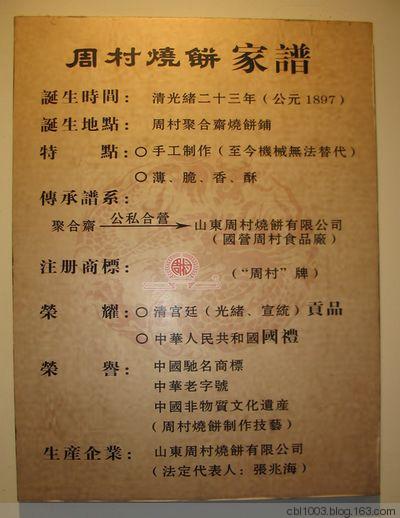 周村燒餅家譜
誕生時間：清光緒二十三年（公元1897）
誕生地點：周村聚合齋燒餅鋪
特點：○手工制作（至今機械無法替代）
○薄、脆、香、酥
傳承譜系：
聚合齋 公私合營 山東周村燒餅有限公司
（國營周村食品廠）
注册商標：（“周村”牌）
榮耀：○清宫廷（光緒、宣統）貢品
○中華人民共和國國禮
榮譽：中國馳名商標
中華老字號
中國非物質文化遺産
（周村燒餅制作技藝）
生産企業：山東周村燒餅有限公司
（法定代表人：張兆海）
cbl1003.blog.163.com